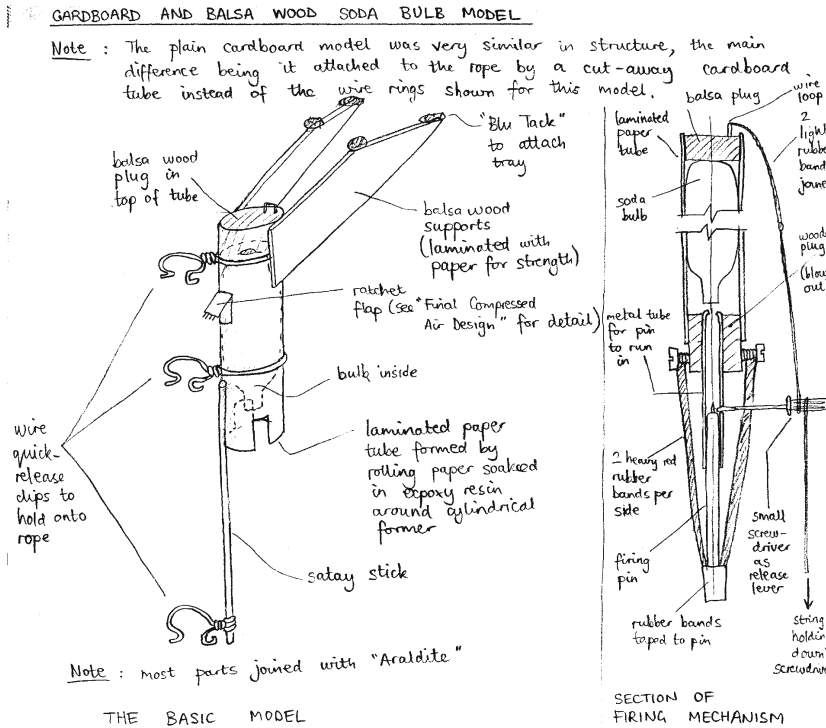 CARDBOARD AND BALSA WOOD SODA BULB MODEL
Note : The plain cardboard model was very similar in structure, the main
difference being it attached to the rope by a cut-away cardboard
tube instead of the wire rings shown for this model.
balsa wood
plug in
top of tube
"Blu Tack"
to attach
tray
balsa wood
supports
(laminated with
paper for strength)
ratchet
flap (see "Final Compressed
Air Design" for detail)
bulb inside
wire
quick-
release
clips to
hold onto
rope
laminated paper
tube formed by
rolling paper soaked
in epoxy resin
around cylindrical
former
satay stick
Note : most parts joined with "Araldite"
THE BASIC MODEL
balsa plug
wire
loop
laminated
paper
tube
2
light
rubber
band
joine
soda
bulb
wood
plug
(blow
out
metal tube
for pin
to run
in
2 heavy red
rubber
bands per
side
small
screw-
driver
as
release
lever
firing
pin
rubber bands
taped to pin
string
holdin
down
screwdriv
SECTION OF
FIRING MECHANISM